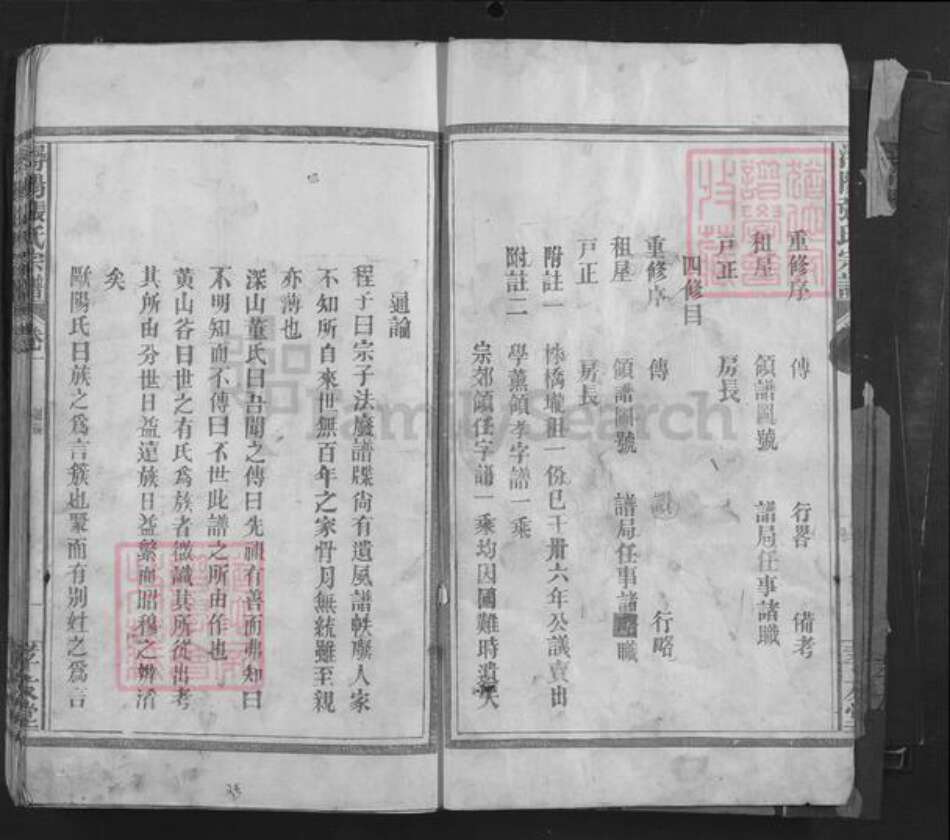 重修序 傳 行畧 備考
祖屋 領譜圖號 譜局任事諸職
戸正 房長
四修目
重修序 傳 行略
祖屋 領譜圖號 譜局任事諸職
戸正 房長
附註一 橋壠祖一份已于卅六年公議賣出
附註二 學薰領孝字譜一乘
宗郊領任字譜一乘均因國難時遺失
通論
程子曰宗子法廢譜牒尙有遺風譜軼廢人家
不知所自來世無百年之家骨月無統雖至親
亦薄也
深山董氏曰吾聞之傳曰先祖有善而弗知曰
不明知而不傳曰不世此譜之所由作也
黃山谷曰世之有氏爲族者微識其所從出考
其所由分世日益遠族日益繁而昭穆之辨淆
矣
歐陽氏曰族之爲言簇也聚而有別姓之爲言
潯陽張氏宗譜 卷
孝友堂
FamilySearch